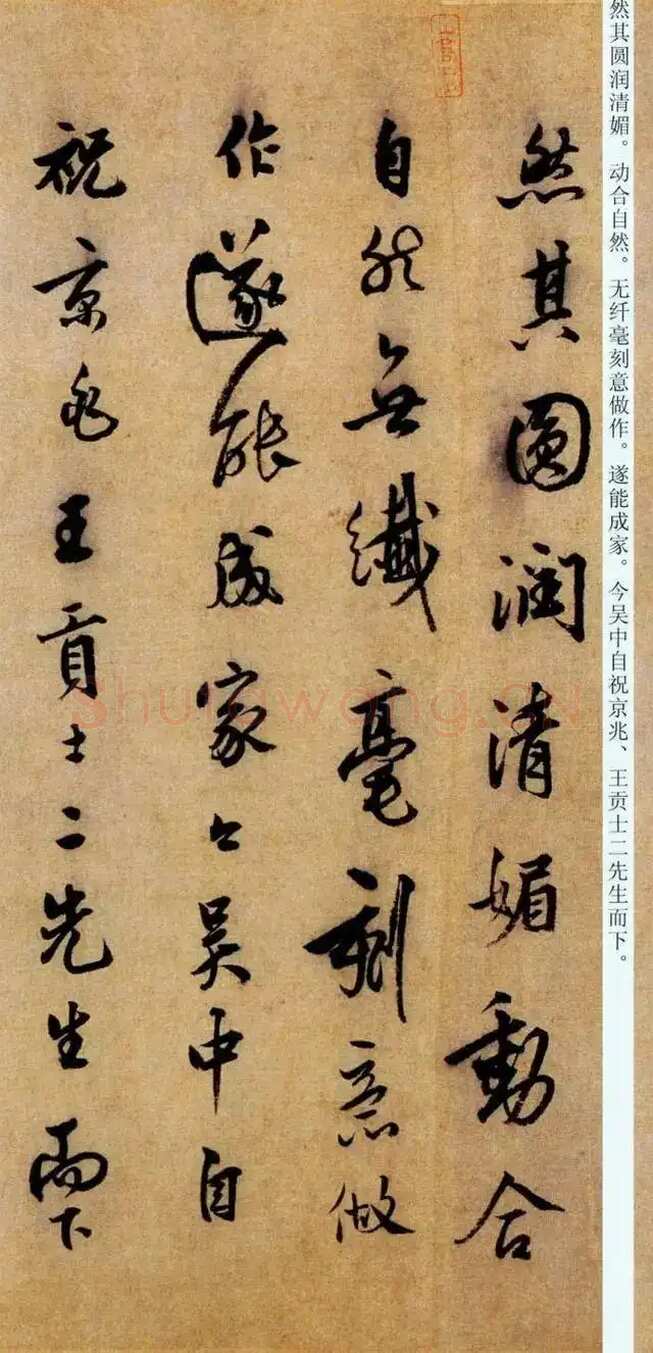 然其圆润清媚。动合自然。无纤毫刻意做作。遂能成家。今吴中自祝京兆、王贡士二先生而下。
然其圓潤清媚動合
自然無纖毫刻意做
作遂能成家今吳中自
祝京兆王貢士二先生而下
Shufawang.CN